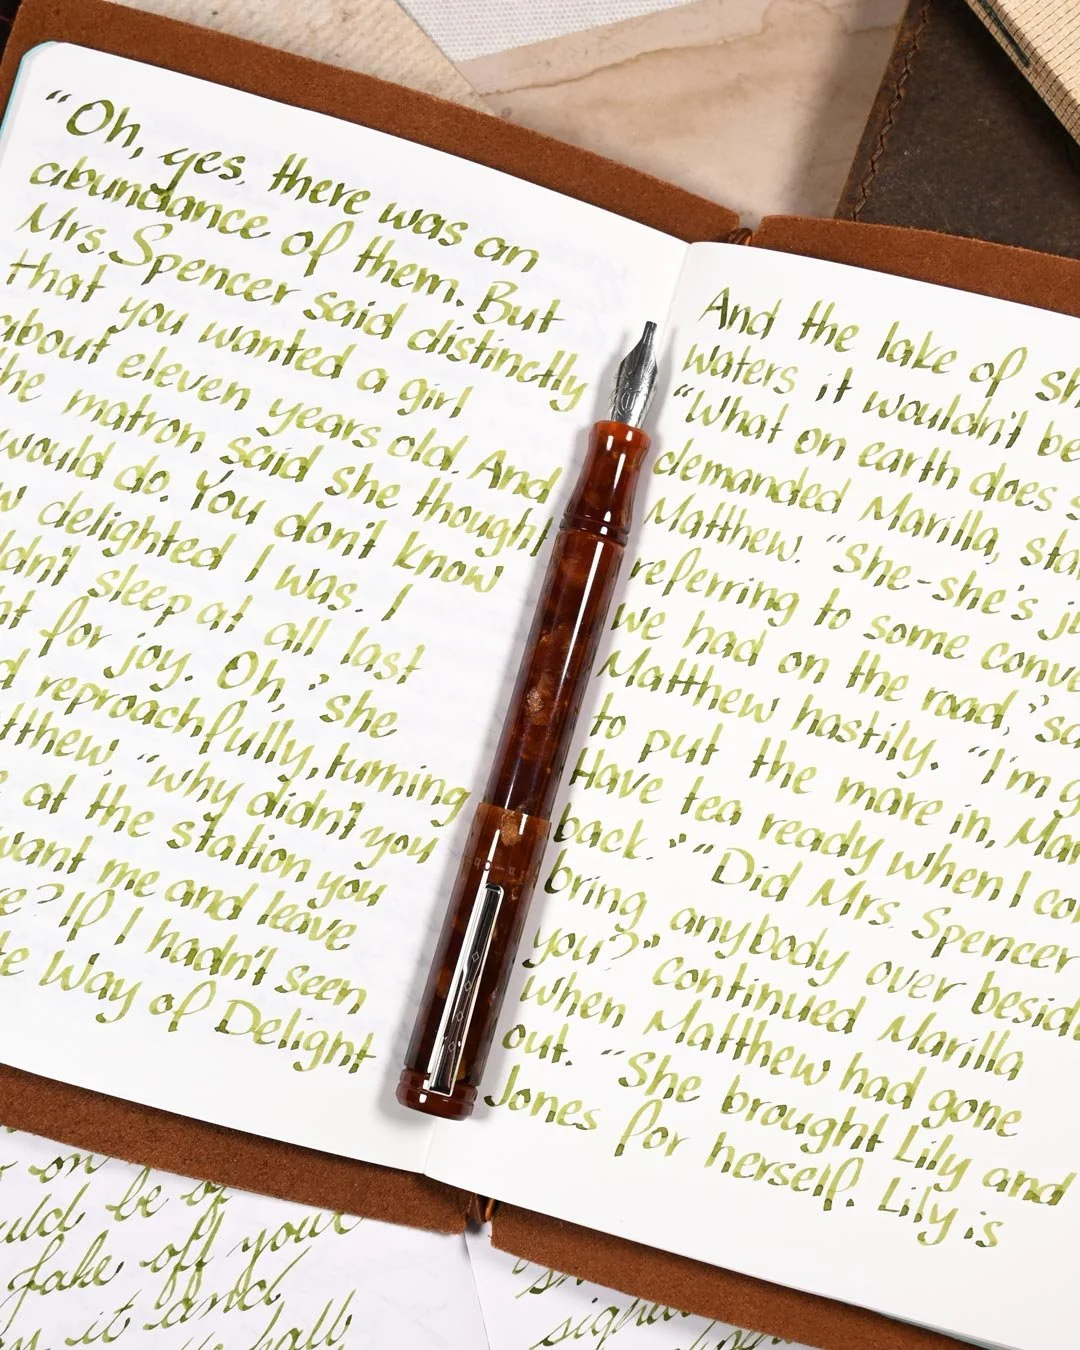 "Oh, yes, there was an
abundance of them. But
Mrs. Spencer said distinctly
that you wanted a girl
about eleven years old. And
the matron said she thought
would do. You don't know
delighted I was. I
sleep at all last
for joy. Oh," she
reproachfully, turning
"why didn't you
at the station you
want me and leave
? If I hadn't seen
Way of Delight
And the lake of
waters it wouldn't be
"What on earth does
demanded Marilla,
Matthew. "She-she's
referring to some
we had on the road,"
Matthew hastily. "I'm
to put the mare in,
Have tea ready when I
back." "Did Mrs. Spencer
bring anybody over
you?" continued Marilla
when Matthew had gone
out. "She brought Lily and
Jones for herself. Lily is
on
be of
fake off your
it and
hall